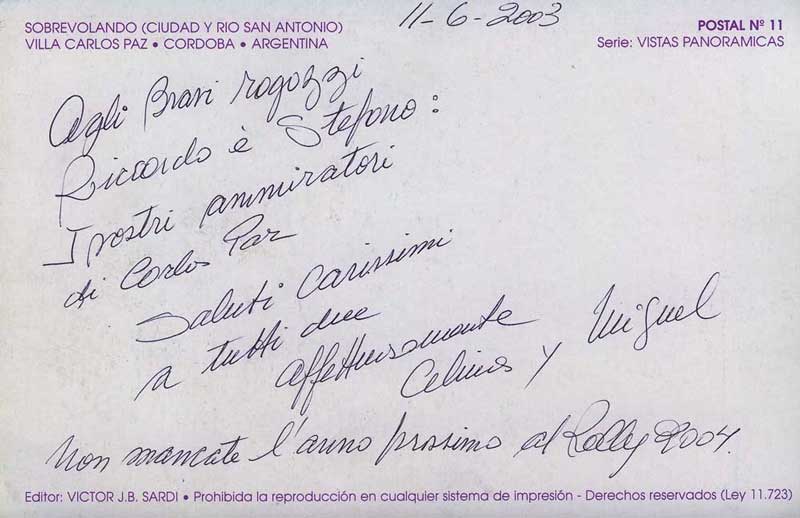 SOBREVOLANDO (CIUDAD Y RIO SAN ANTONIO)
VILLA CARLOS PAZ • CORDOBA • ARGENTINA
11-6-2003
POSTAL Nº 11
Serie: VISTAS PANORAMICAS
Agli Bravi ragazzi
Riccardo è Stefano:
I vostri ammiratori
di Carlos Paz
Saluti Carissimi
a tutti due
affettuosamente
Celina y Miguel
Non mancate l'anno prossimo al Rally 2004.
Editor: VICTOR J.B. SARDI • Prohibida la reproducción en cualquier sistema de impresión - Derechos reservados (Ley 11.723)